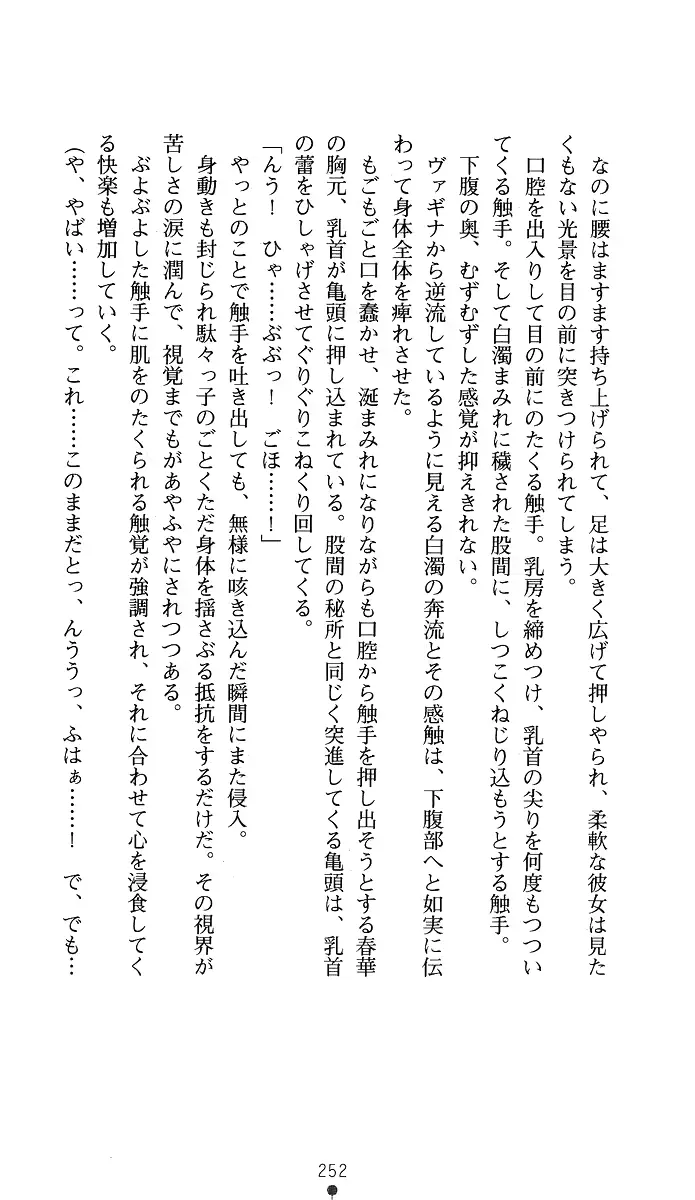 なのに腰はますます持ち上げられて、足は大きく広げて押しやられ、柔軟な彼女は見た
くもない光景を目の前に突きつけられてしまう。
口腔を出入りして目の前にのたくる触手。乳房を締めつけ、乳首の尖りを何度もつつい
てくる触手。そして白濁まみれに穢された股間に、しつこくねじり込もうとする触手。
下腹の奥、むずむずした感覚が抑えきれない。
ヴァギナから逆流しているように見える白濁の奔流とその感触は、下腹部へと如実に伝
わって身体全体を痺れさせた。
もごもごと口を蠢かせ、涎まみれになりながらも口腔から触手を押し出そうとする春華
の胸元、乳首が亀頭に押し込まれている。股間の秘所と同じく突進してくる亀頭は、乳首
の蕾をひしゃげさせてぐりぐりこねくり回してくる。
「んう！　ひゃ……ぶぶっ！　ごほ……！」
やっとのことで触手を吐き出しても、無様に咳き込んだ瞬間にまた侵入。
身動きも封じられ駄々っ子のごとくただ身体を揺さぶる抵抗をするだけだ。その視界が
苦しさの涙に潤んで、視覚までもがあやふやにされつつある。
ぶよぶよした触手に肌をのたくられる触覚が強調され、それに合わせて心を浸食してく
る快楽も増加していく。
（や、やばい……って。これ……このままだとっ、んううっ、ふはぁ……！　で、でも…
252